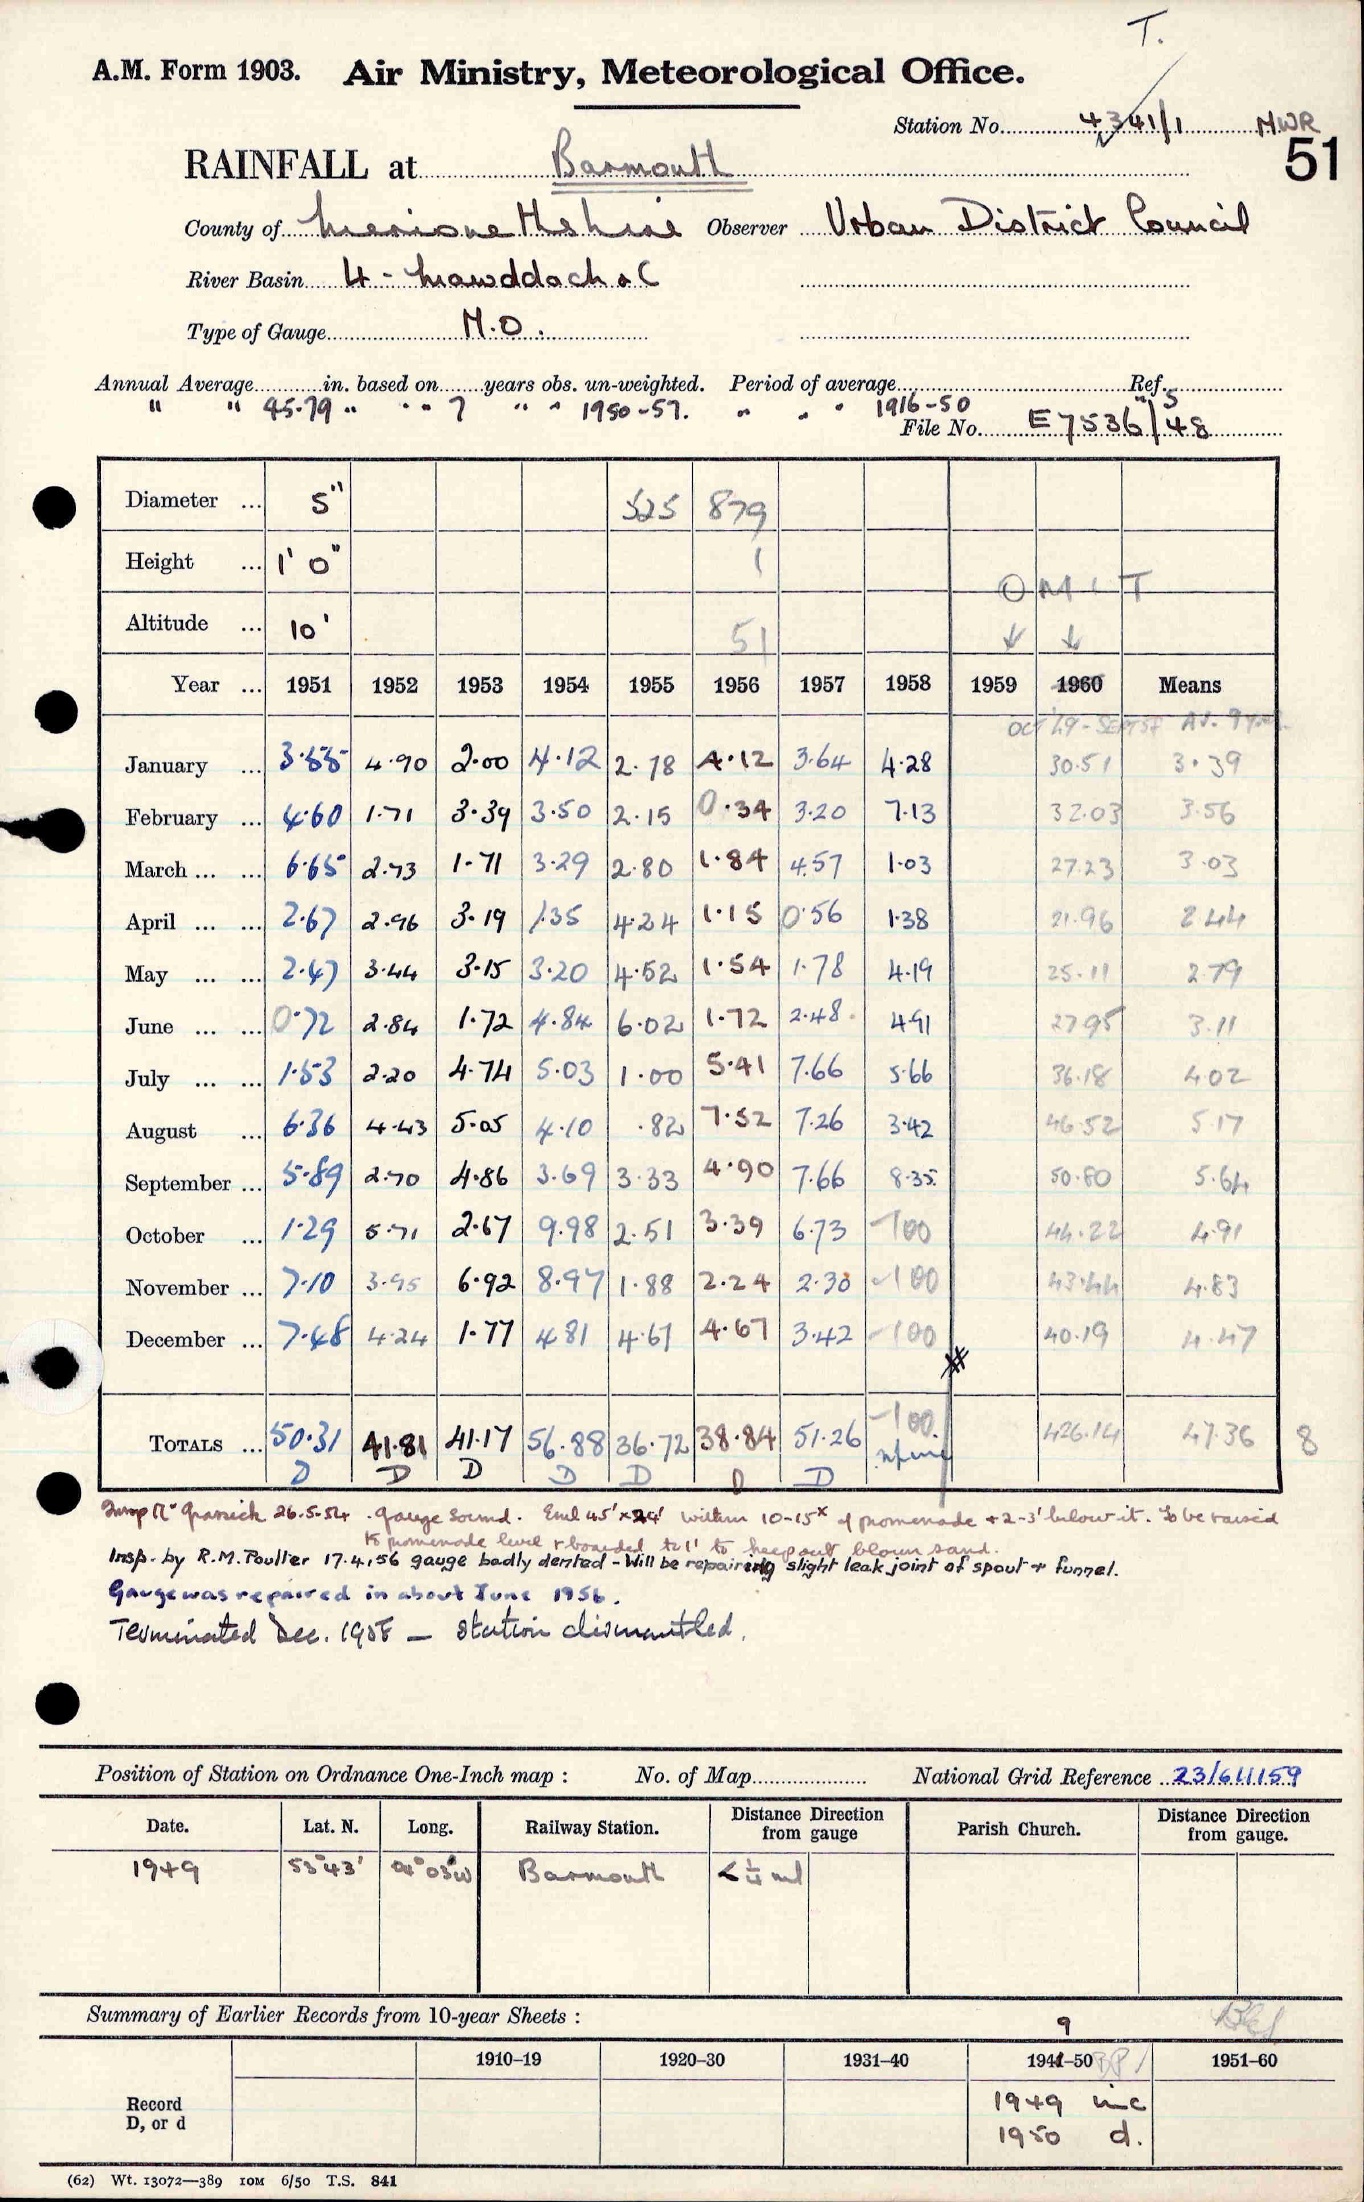 T.
A.M. Form 1903. Air Ministry, Meteorological Office.
Station No. 4341/1 MWR
51
RAINFALL at Barmouth
County of Merionethshire Observer Urban District Council
River Basin 4 - Mawddach &c
Type of Gauge M.O.
Annual Average in. based on years obs. un-weighted. Period of average Ref.
" " 45.79 " " " 7 " " 1950-57. " " " 1916-50 " 5
File No. E7536/48
Diameter ... 5" 525 879
Height ... 1' 0" 1
OMIT
Altitude ... 10' 51 ↓ ↓
Year ... 1951 1952 1953 1954 1955 1956 1957 1958 1959 1960 Means
OCT '49 - SEPT 58 AV. 9 yrs.
January ... 3.55 4.90 2.00 4.12 2.78 4.12 3.64 4.28 30.51 3.39
February ... 4.60 1.71 3.39 3.50 2.15 0.34 3.20 7.13 32.03 3.56
March ... ... 6.65 2.73 1.71 3.29 2.80 1.84 4.57 1.03 27.23 3.03
April ... ... 2.67 2.96 3.19 1.35 4.24 1.15 0.56 1.38 21.96 2.44
May ... ... 2.47 3.44 3.15 3.20 4.52 1.54 1.78 4.19 25.11 2.79
June ... ... 0.72 2.84 1.72 4.84 6.02 1.72 2.48 4.91 27.95 3.11
July ... ... 1.53 2.20 4.74 5.03 1.00 5.41 7.66 5.66 36.18 4.02
August ... 6.36 4.43 5.05 4.10 .82 7.52 7.26 3.42 46.52 5.17
September ... 5.89 2.70 4.86 3.69 3.33 4.90 7.66 8.35 50.80 5.64
October ... 1.29 5.71 2.67 9.98 2.51 3.39 6.73 -100 44.22 4.91
November ... 7.10 3.95 6.92 8.97 1.88 2.24 2.30 -100 43.44 4.83
December ... 7.48 4.24 1.77 4.81 4.67 4.67 3.42 -100 40.19 4.47
TOTALS ... 50.31 41.81 41.17 56.88 36.72 38.84 51.26 -100 426.14 47.36 8
D D D D D D D
Insp Mr Grassick 26.5.54. Gauge sound. Encl 45' x 24' within 10-15x of promenade + 2-3' below it. To be raised
to promenade level & boarded to 1' to keep out blown sand.
Insp. by R.M. Poulter 17.4.56 gauge badly dented - Will be repairing slight leak joint of spout + funnel.
Gauge was repaired in about June 1956.
Terminated Dec. 1958 — Station dismantled.
Position of Station on Ordnance One-Inch map : No. of Map National Grid Reference 23/611159
Date. Lat. N. Long. Railway Station. Distance Direction from gauge Parish Church. Distance Direction from gauge.
1949 53°43' 04°03'W Barmouth <¼ ml
Summary of Earlier Records from 10-year Sheets :
9
1910–19 1920–30 1931–40 1941–50 1951–60
Record
D, or d
1949 inc
1950 d.
(62) Wt. 13072—389 10M 6/50 T.S. 841